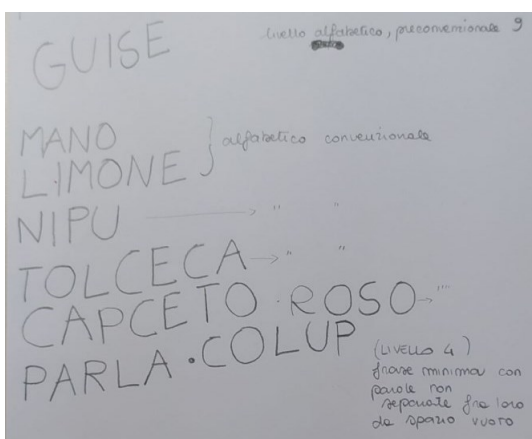 GUISE livello alfabetico, preconvenzionale 9
MANO
LIMONE } alfabetico convenzionale
NIPU → " "
TOLCECA → " "
CAPCETO · ROSO → ""
PARLA · COLUP
(LIVELLO 4)
frase minima con
parole non
separate fra loro
da spazio vuoto